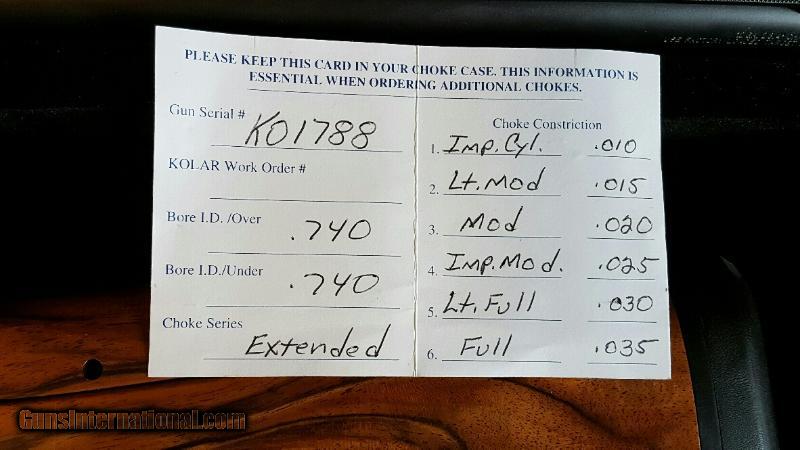 PLEASE KEEP THIS CARD IN YOUR CHOKE CASE. THIS INFORMATION IS
ESSENTIAL WHEN ORDERING ADDITIONAL CHOKES.
Gun Serial # K01788
KOLAR Work Order #
Bore I.D. /Over .740
Bore I.D./Under .740
Choke Series Extended
Choke Constriction
1. Imp. Cyl. .010
2. Lt. Mod .015
3. Mod .020
4. Imp. Mod. .025
5. Lt. Full .030
6. Full .035
GunsInternational.com